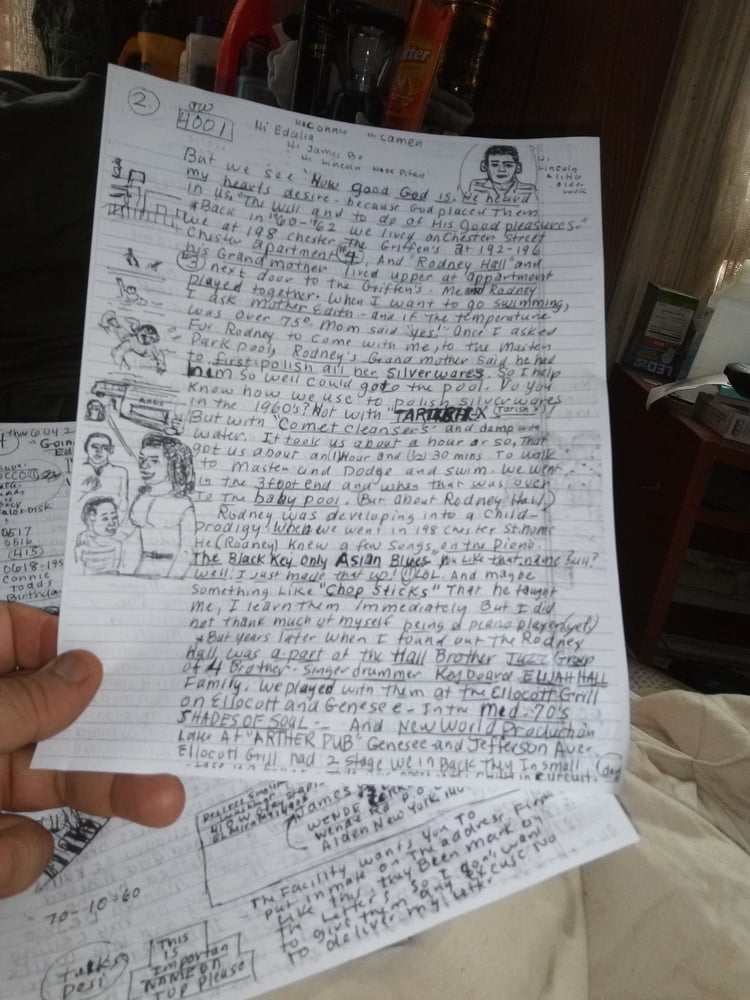 2.
JW
4001
Hi Connie Hi Camen
Hi Edalia
Hi James
Hi Lincoln
Hi
Lincoln
Little
older
look
But we see "How good God is. He heard
my hearts desire - because God placed them
in us, "The Will and to do of His Good pleasures."
*Back in '60-'62 we lived on Chester Street
we at 198 chester, The Griffen's at 192-196
Chester apartment #4, And "Rodney Hall" and
his Grandmother lived upper at appartment
#3 next door to the Griffen's - Me and Rodney
Played together. When I want to go swimming,
I ask Mother Edith - and if the temperature
was over 75° Mom said "yes!" Once I asked
Fur Rodney to come with me, to the Masten
Park Pool, Rodney's Grand mother said he had
to first polish all her Silverwares. So I help
him so well could go to the pool. Do you
Know how we use to polish silverwares
in the 1960s? Not with "TARNISH-X (Tarish X)
But with "Comet cleansers" and damp with
water. It took us about a hour or so, That
got us about an (1) Hour and (1/2) 30 mins. To walk
to Masten and Dodge and swim. We went
in the 3 foot end and when that was over
To The baby pool. (But about Rodney Hall)
Rodney was developing into a child-
prodigy! When we went in 198 Chester St. home
He (Rodney) Knew a few Songs, on the Piano.
The Black Key only Asian Blues you like that name Bull?
Well. I Just made that up! LOL. And maybe
something Like "Chop Sticks" That he taught
me, I learn them immediately But I did
not thank much of myself being a piano player (yet)
*But years later when I found out the Rodney
Hall was a-part of the Hall Brother Jazz Group
of 4 Brother - Singer drummer Key Board ELIJAH HALL
Family. We played with them at the Ellocott Grill
on Ellocott and Genesee - In the Med-70's
SHADES OF SOUL - And New World Production
Later At "ARTHER PUB" Genesee and Jefferson Ave.
Ellocott Grill had 2 Stage We in Back They In small
circuit.
6042
"Goin
Ed
0517
0516
(415)
0618-195
Connie
Todds
Birthday
James
WENDE
Wende Rd
Alden New York
The Facility wants you To
put inmate on The address First
Like this, they Been mark by
the Letters. So I don't want
to give them any excuse No
to deliver my letter
70-10-60
This
is
Importan
NAME ON
TOP please